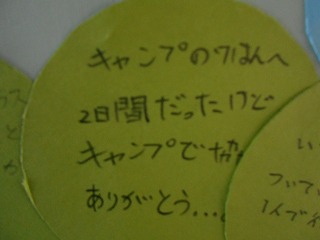 キャンプの7はんへ
2日間だったけど
キャンプで
ありがとう…。
い
ついて
1人で